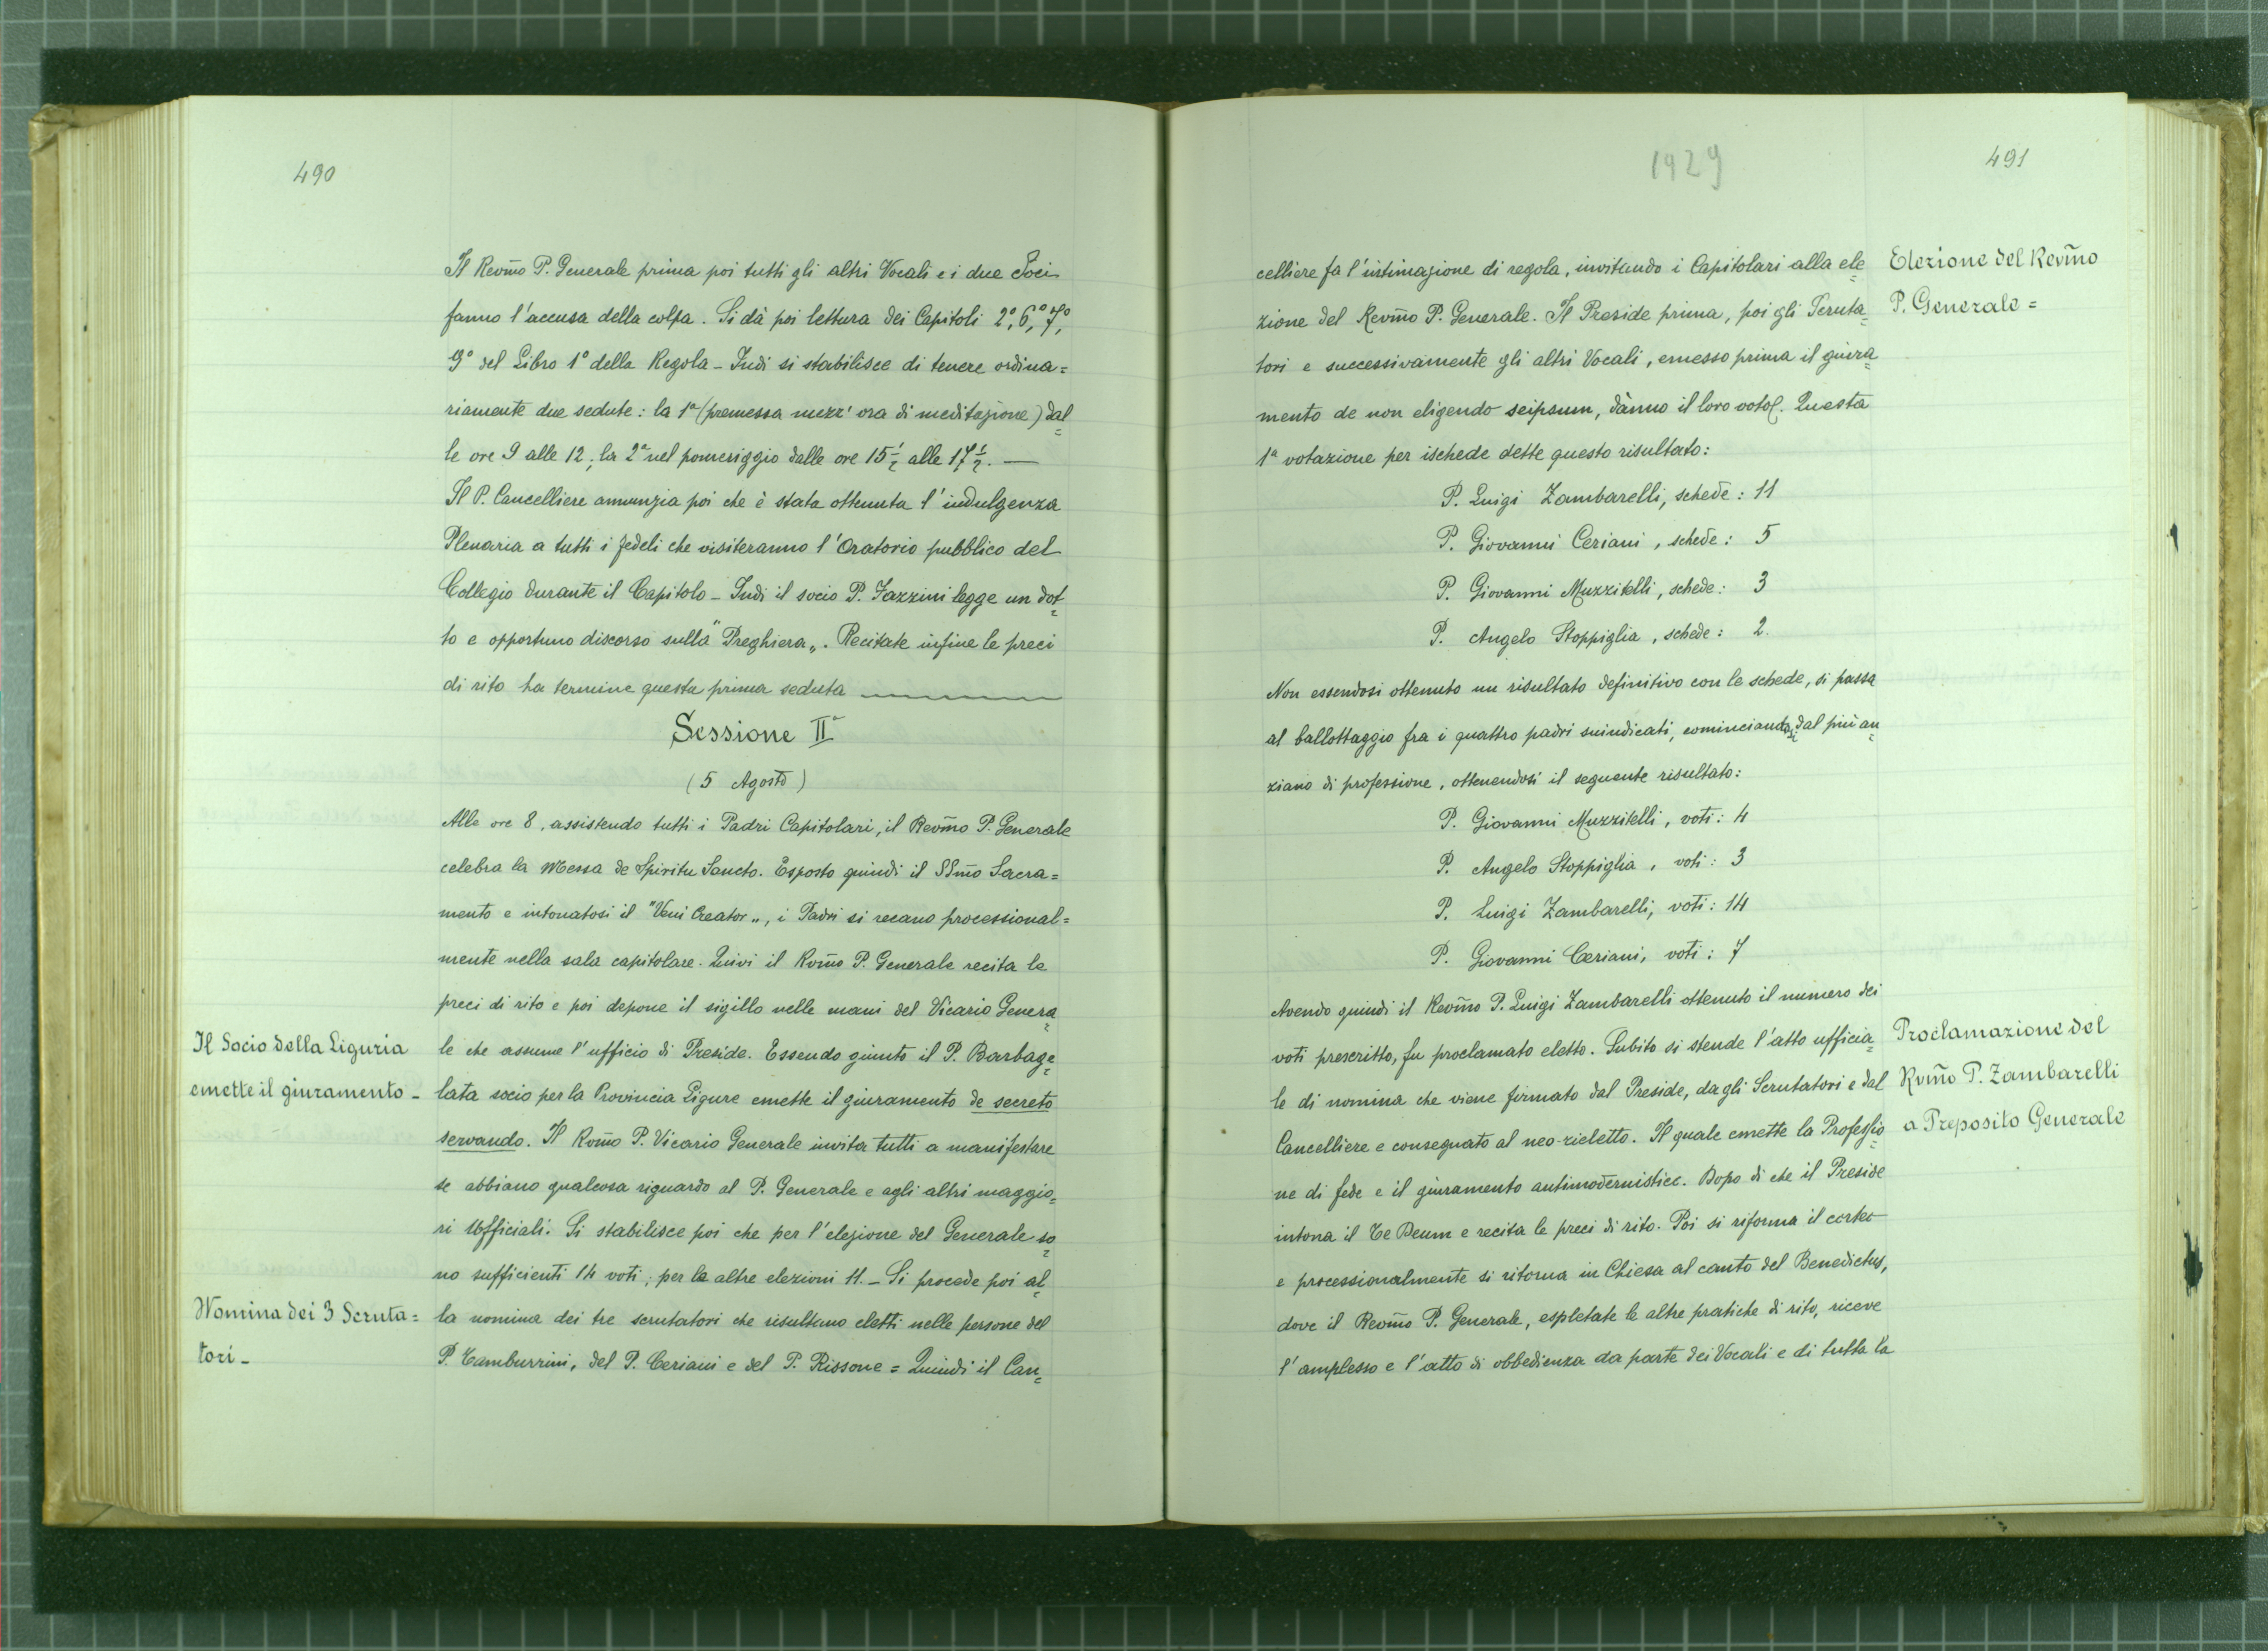 490
Il Revm̃o P. Generale prima poi tutti gli altri Vocali e i due Soci
fanno l'accusa della colpa. Si dà poi lettura dei Capitoli 2º, 6º, 7º,
9º del Libro 1º della Regola _ Indi si stabilisce di tenere ordina=
riamente due sedute: la 1ª (premessa mezz'ora di meditazione) dal=
le ore 9 alle 12; la 2ª nel pomeriggio dalle ore 15½ alle 17½. —
Il P. Cancelliere annunzia poi che è stata ottenuta l'indulgenza
Plenaria a tutti i fedeli che visiteranno l'Oratorio pubblico del
Collegio durante il Capitolo _ Indi il socio P. Fazzini legge un dot=
to e opportuno discorso sulla "Preghiera„. Recitate infine le preci
di rito ha termine questa prima seduta
Sessione IIª
(5 Agosto)
Alle ore 8, assistendo tutti i Padri Capitolari, il Revm̃o P. Generale
celebra la Messa de Spiritu Sancto. Esposto quindi il SSm̃o Sacra=
mento e intonatosi il "Veni Creator„, i Padri si recano processional=
mente nella sala capitolare. Quivi il Rvm̃o P. Generale recita le
preci di rito e poi depone il sigillo nelle mani del Vicario Genera=
Il Socio della Liguria
emette il giuramento _
le che assume l'ufficio di Preside. Essendo giunto il P. Barbage=
lata socio per la Provincia Ligure emette il giuramento de secreto
servando. Il Rvm̃o P. Vicario Generale invita tutti a manifestare
se abbiano qualcosa riguardo al P. Generale e agli altri maggio=
ri Ufficiali. Si stabilisce poi che per l'elezione del Generale so=
no sufficienti 14 voti; per le altre elezioni 11. _ Si procede poi al=
Nomina dei 3 Scruta=
tori _
la nomina dei tre scrutatori che risultano eletti nelle persone del
P. Tamburrini, del P. Ceriani e del P. Rissone = Quindi il Can=
1929
491
Elezione del Revm̃o
P. Generale =
celliere fa l'intimazione di regola, invitando i Capitolari alla ele=
zione del Revm̃o P. Generale. Il Preside prima, poi gli Scruta=
tori e successivamente gli altri Vocali, emesso prima il giura=
mento de non eligendo seipsum, dànno il loro voto. Questa
1ª votazione per ischede dette questo risultato:
P. Luigi Zambarelli, schede: 11
P. Giovanni Ceriani, schede: 5
P. Giovanni Muzzitelli, schede: 3
P. Angelo Stoppiglia, schede: 2.
Non essendosi ottenuto un risultato definitivo con le schede, si passa
al ballottaggio fra i quattro padri suindicati, cominciandosi dal più an=
ziano di professione, ottenendosi il seguente risultato:
P. Giovanni Muzzitelli, voti: 4
P. Angelo Stoppiglia, voti: 3
P. Luigi Zambarelli, voti: 14
P. Giovanni Ceriani, voti: 7
Avendo quindi il Revm̃o P. Luigi Zambarelli ottenuto il numero dei
Proclamazione del
Rvm̃o P. Zambarelli
a Preposito Generale
voti prescritto, fu proclamato eletto. Subito si stende l'atto ufficia=
le di nomina che viene firmato dal Preside, dagli Scrutatori e dal
Cancelliere e consegnato al neo-rieletto. Il quale emette la Professio=
ne di fede e il giuramento antimodernistico. Dopo di che il Preside
intona il Te Deum e recita le preci di rito. Poi si riforma il corteo
e processionalmente si ritorna in Chiesa al canto del Benedictus,
dove il Revm̃o P. Generale, espletate le altre pratiche di rito, riceve
l'amplesso e l'atto di obbedienza da parte dei Vocali e di tutta la